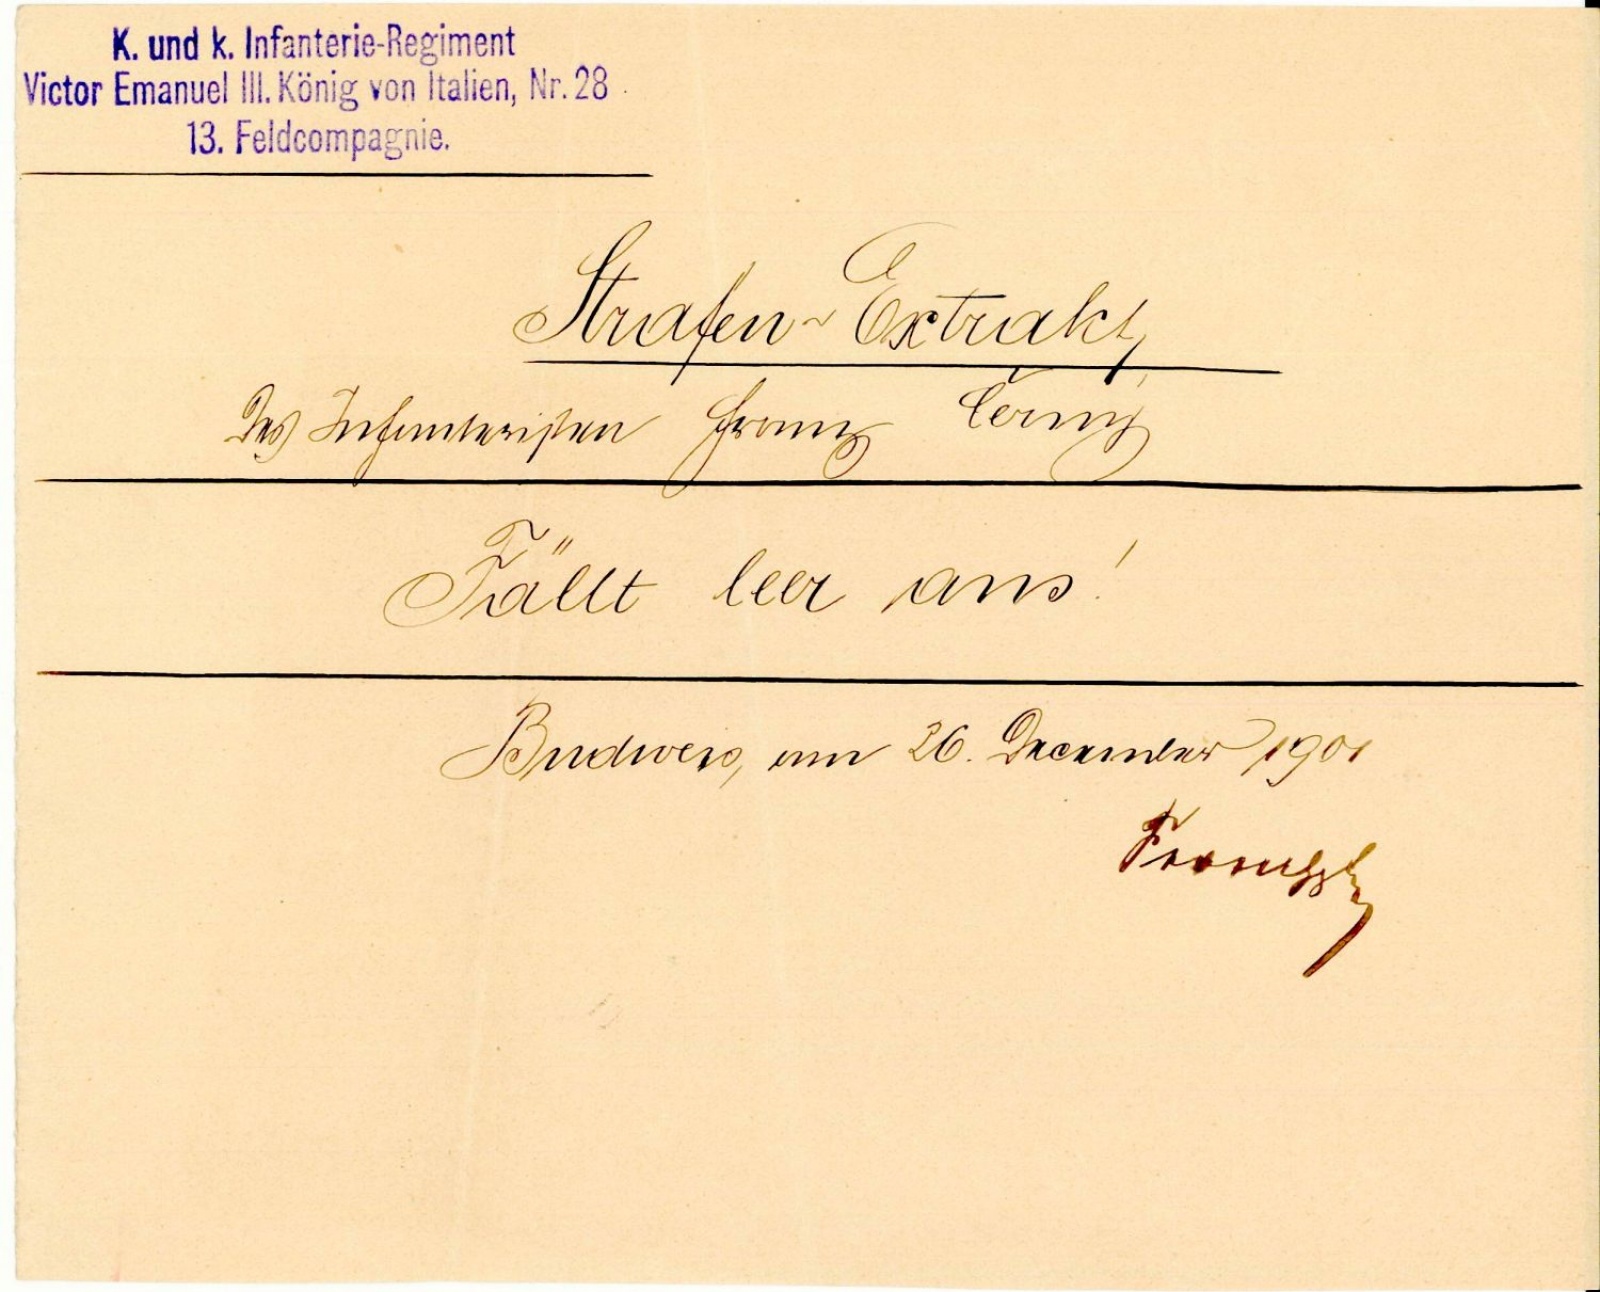 K. und k. Infanterie-Regiment
Victor Emanuel III. König von Italien, Nr. 28
13. Feldcompagnie.
Strafen-Extrakt,
des Infanteristen Franz Černý
Fällt leer aus!
Budweis, am 26. December 1901